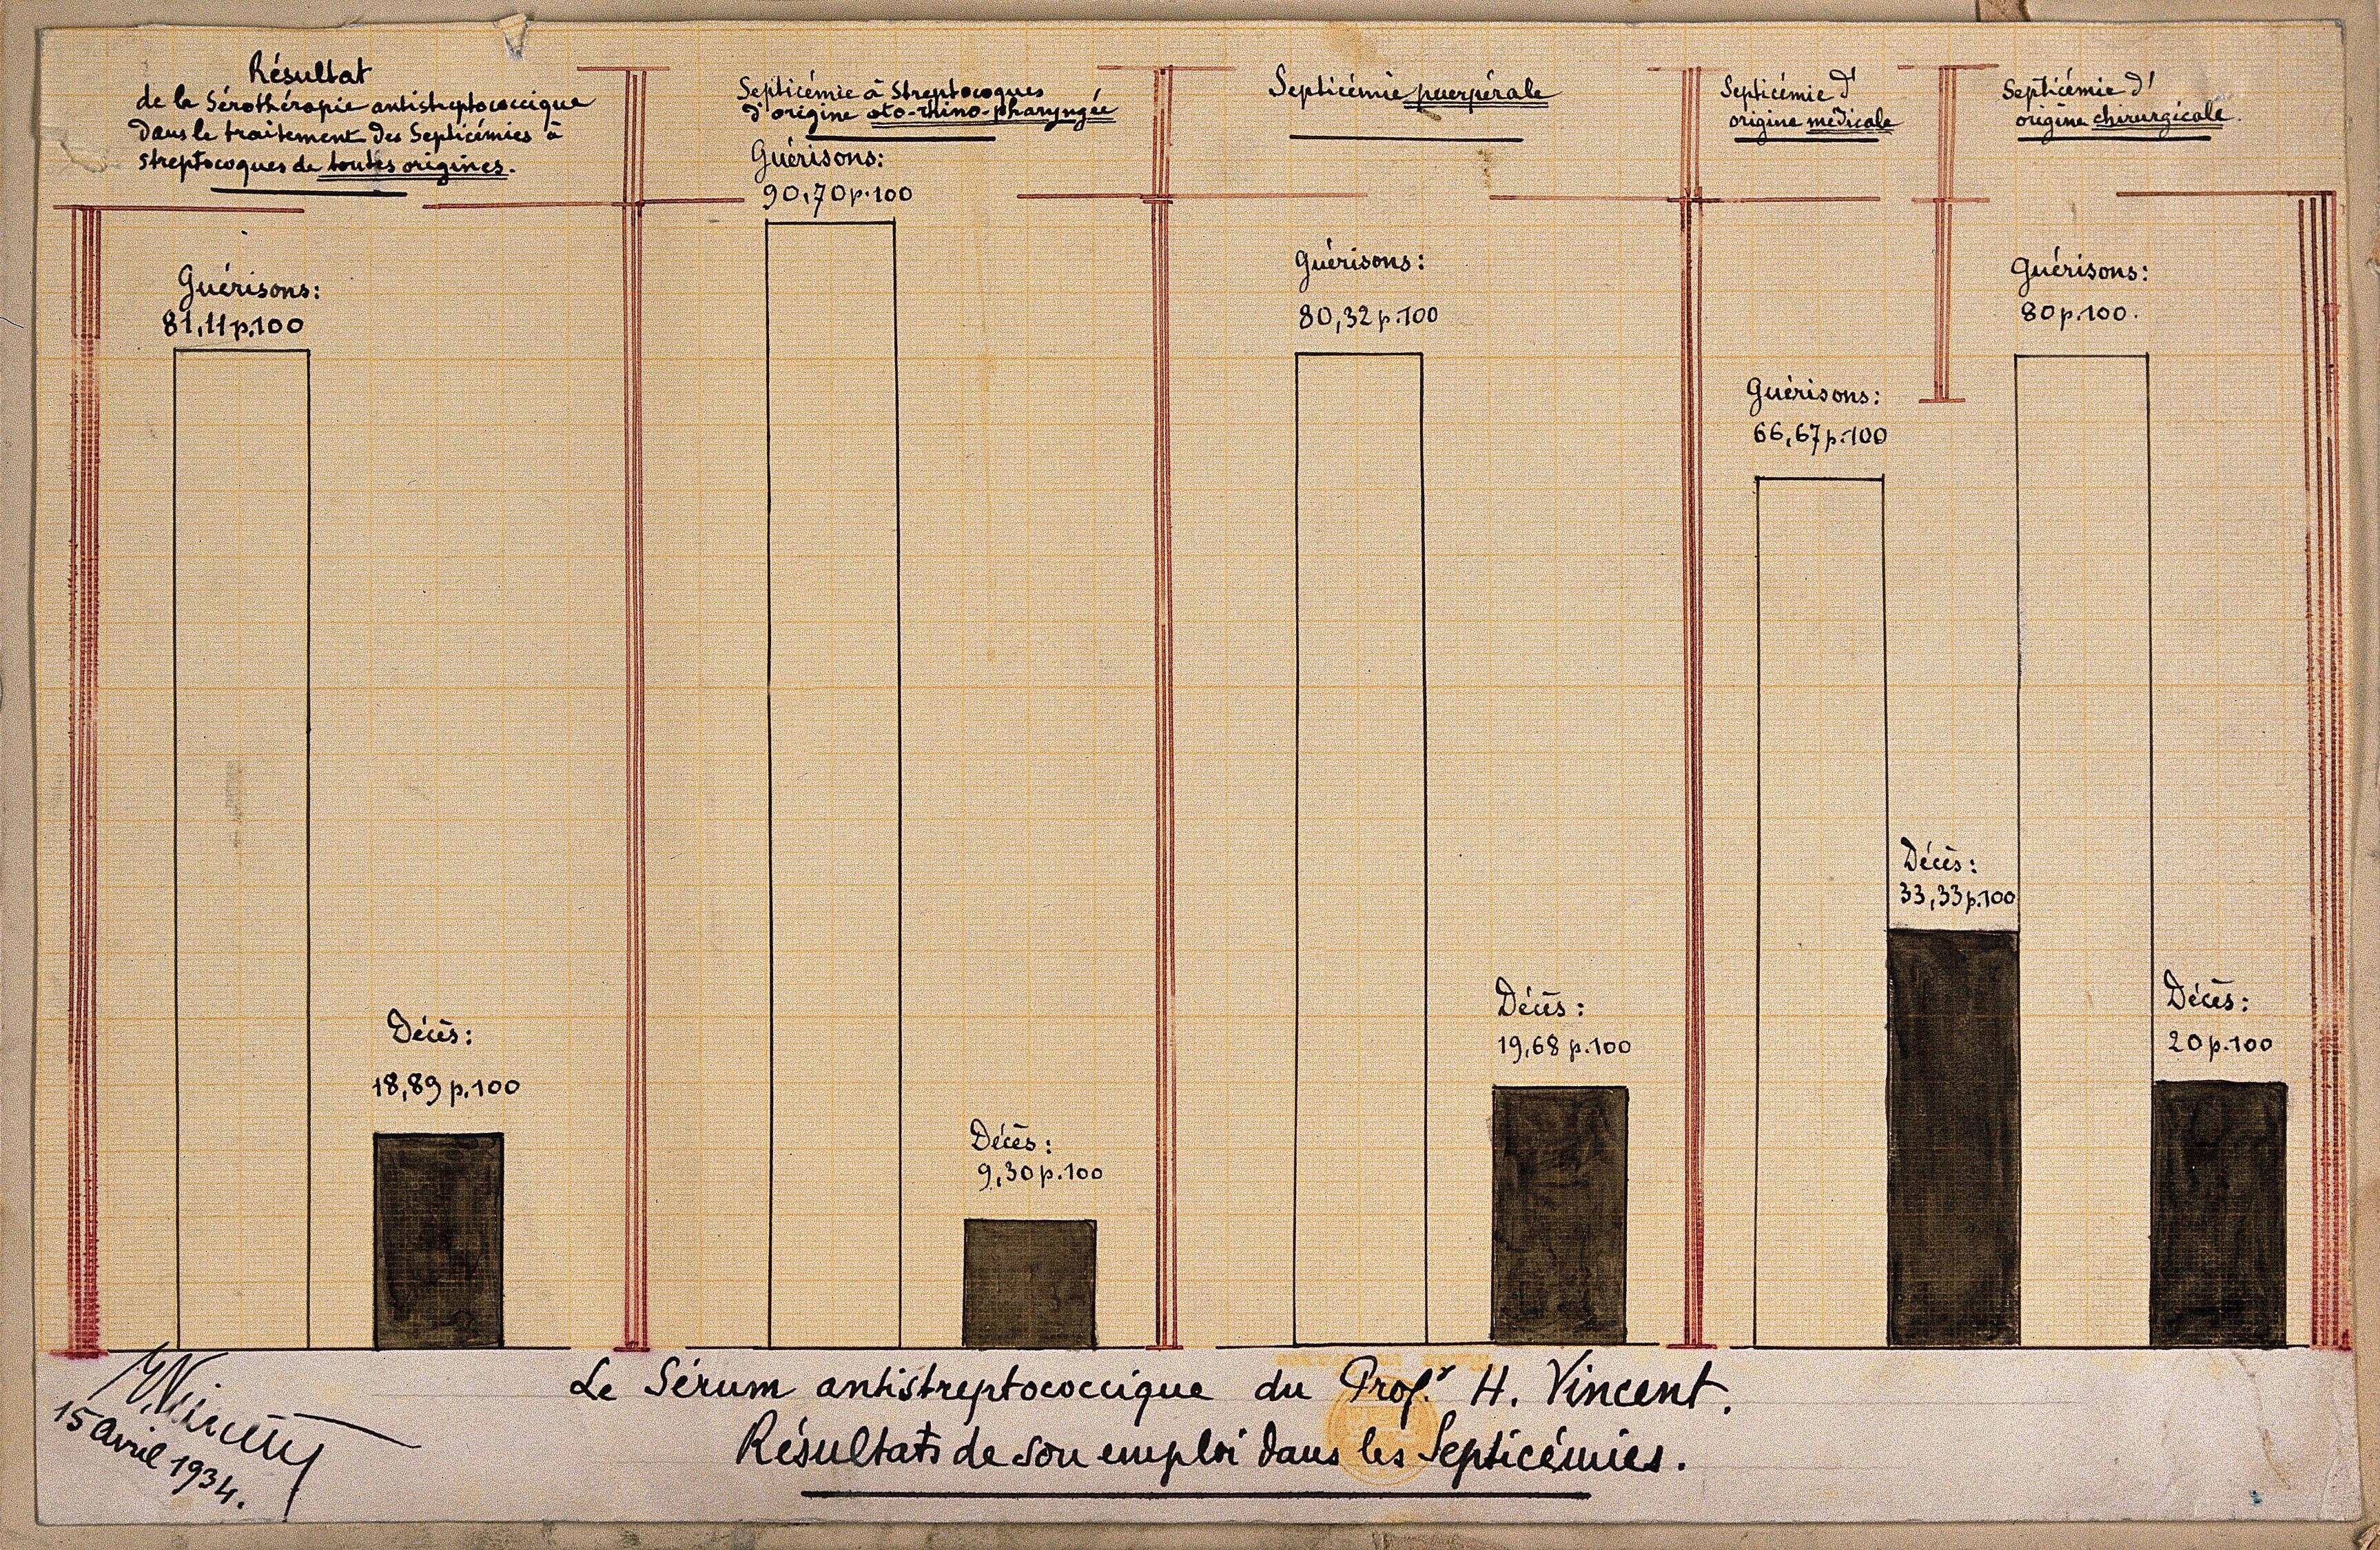 Résultat
de la Sérothérapie antistreptococcique
dans le traitement des Septicémies à
streptocoques de toutes origines.
Guérisons:
81,11 p.100
Décès:
18,89 p.100
Septicémie à Streptocoques
d'origine oto-rhino-pharyngée
Guérisons:
90,70 p.100
Décès:
9,30 p.100
Septicémie puerpérale
Guérisons:
80,32 p.100
Décès:
19,68 p.100
Septicémie d'
origine médicale
Guérisons:
66,67 p.100
Décès:
33,33 p.100
Septicémie d'
origine chirurgicale.
Guérisons:
80 p.100.
Décès:
20 p.100
Le Sérum antistreptococcique du Prof.r H. Vincent.
Résultats de son emploi dans les Septicémies.
H. Vincent
15 Avril 1934.